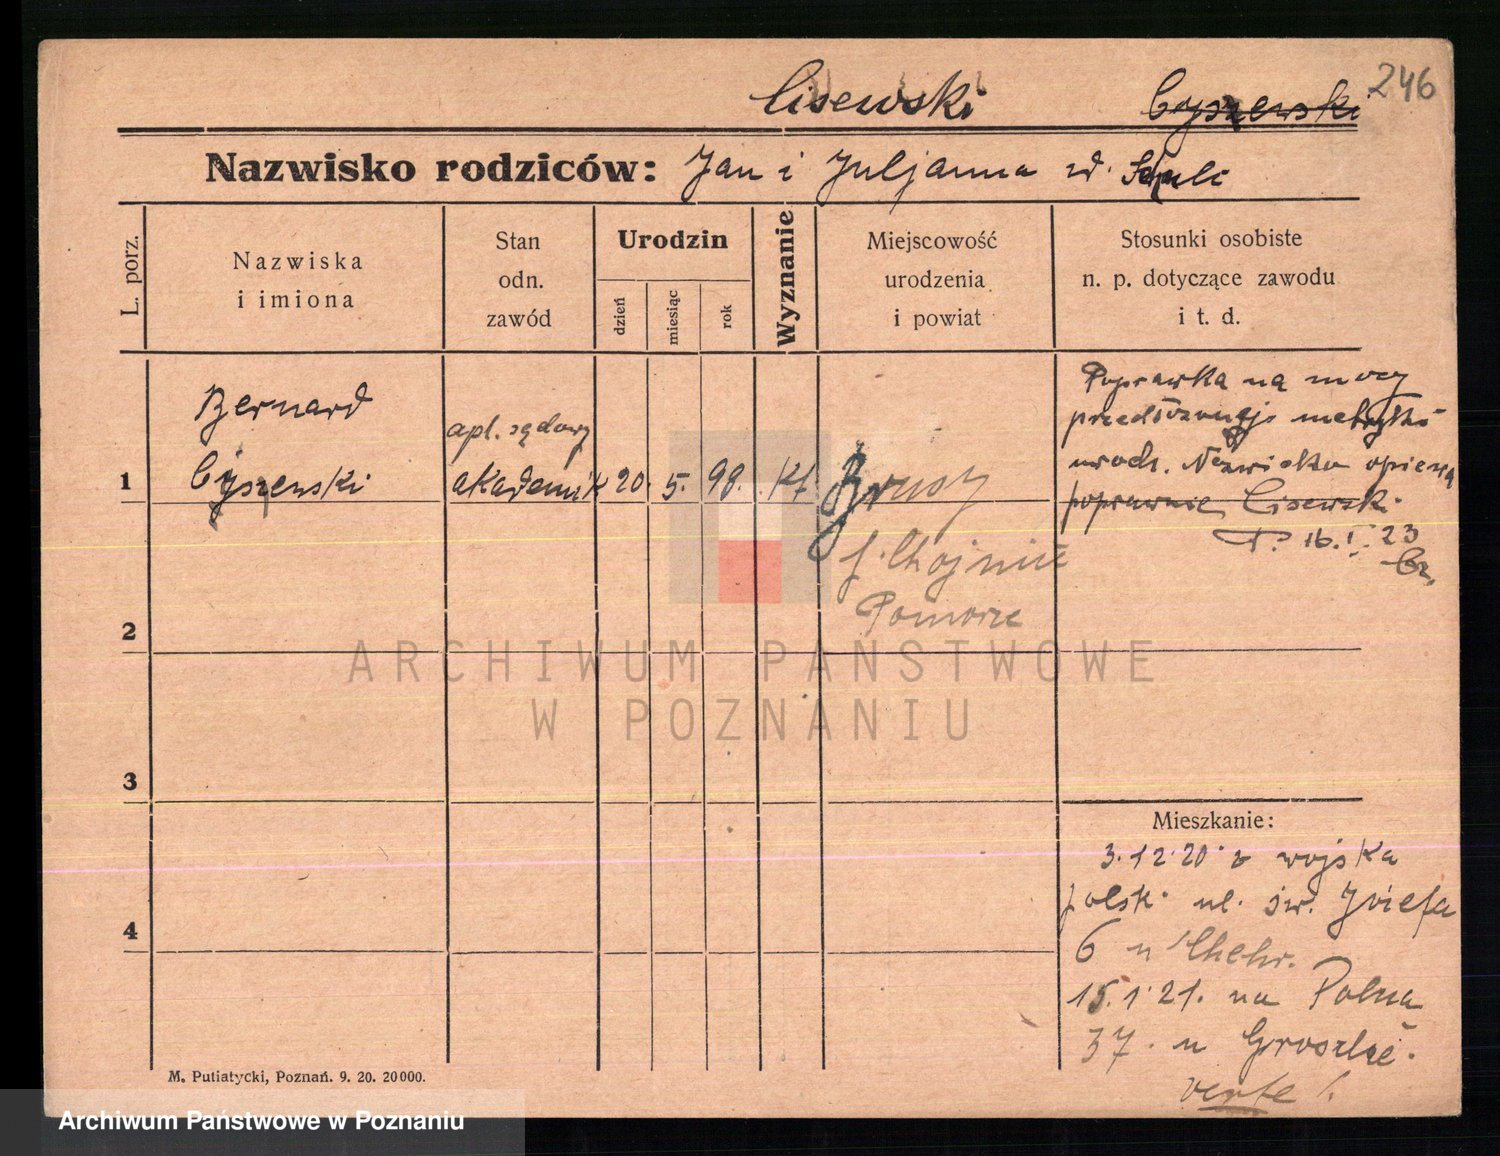 246
Cisewski Cyszewski
Nazwisko rodziców: Jan i Juljanna zd.
L. porz.
Nazwiska
i imiona
Stan
odn.
zawód
Urodzin
dzień
miesiąc
rok
Wyznanie
Miejscowość
urodzenia
i powiat
Stosunki osobiste
n. p. dotyczące zawodu
i t. d.
1
Bernard
Cyszewski
apl. sądowy
akademik
20.
5.
98.
Kt.
Brusy
p. Chojnice
Pomorze
Poprawka na mocy
urodz. Nazwisko opiewa
poprawnie Cisewski.
P. 16. I. 23
2
3
4
Mieszkanie:
3.12.20 z wojska
polsk. ul. św. Józefa
6 u
15.1.21. na Polna
37. u
verte!
M. Putiatycki, Poznań. 9. 20. 20000.
ARCHIWUM PAŃSTWOWE
W POZNANIU
Archiwum Państwowe w Poznaniu